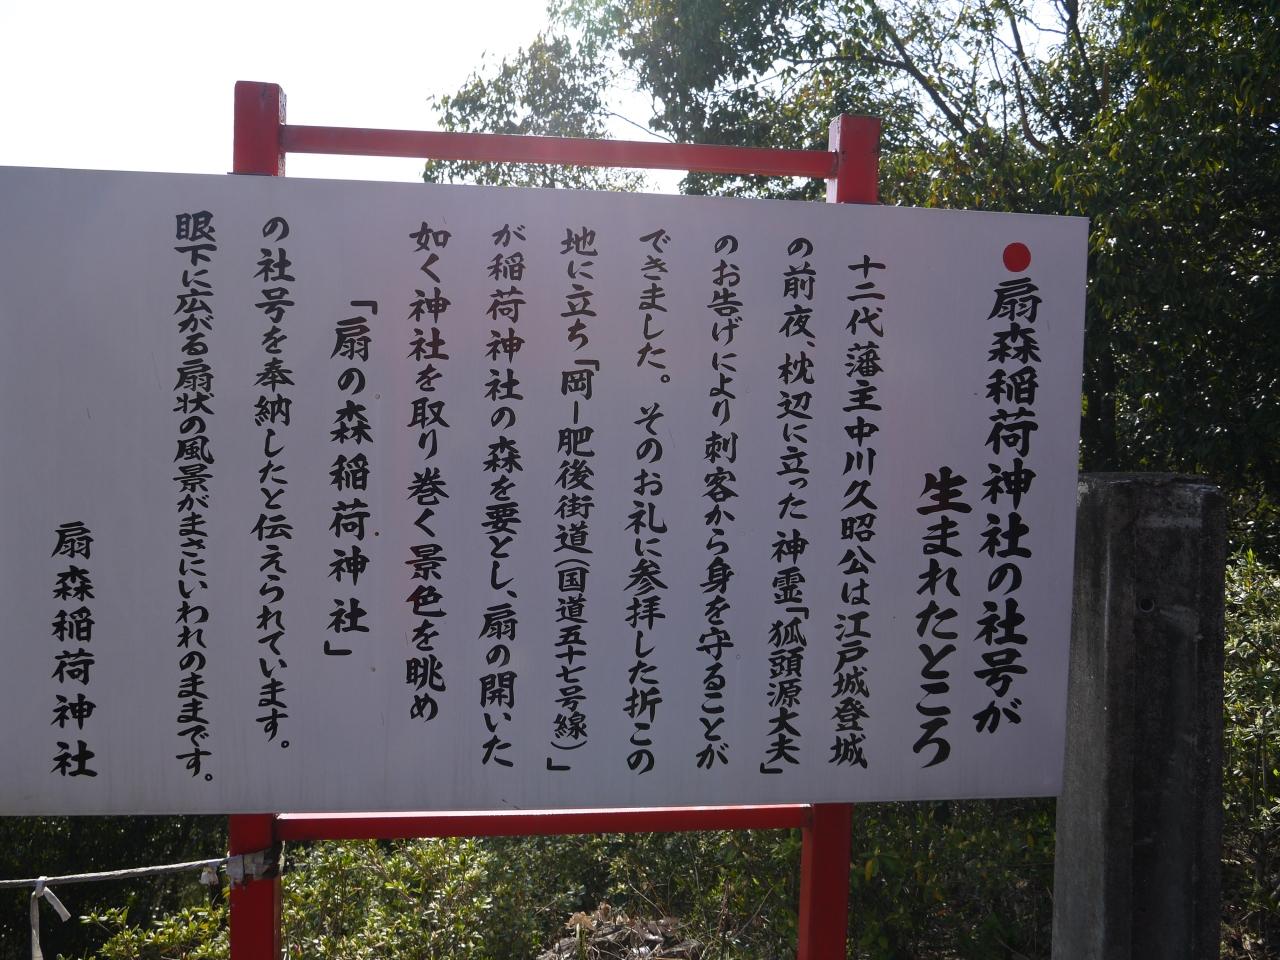 ●扇森稲荷神社の社号が
生まれたところ
十二代藩主中川久昭公は江戸城登城
の前夜、枕辺に立った神霊「狐頭源大夫」
のお告げにより刺客から身を守ることが
できました。そのお礼に参拝した折この
地に立ち「岡ー肥後街道(国道五十七号線)」
が稲荷神社の森を要とし、扇の開いた
如く神社を取り巻く景色を眺め
「扇の森稲荷神社」
の社号を奉納したと伝えられています。
眼下に広がる扇状の風景がまさにいわれのままです。
扇森稲荷神社